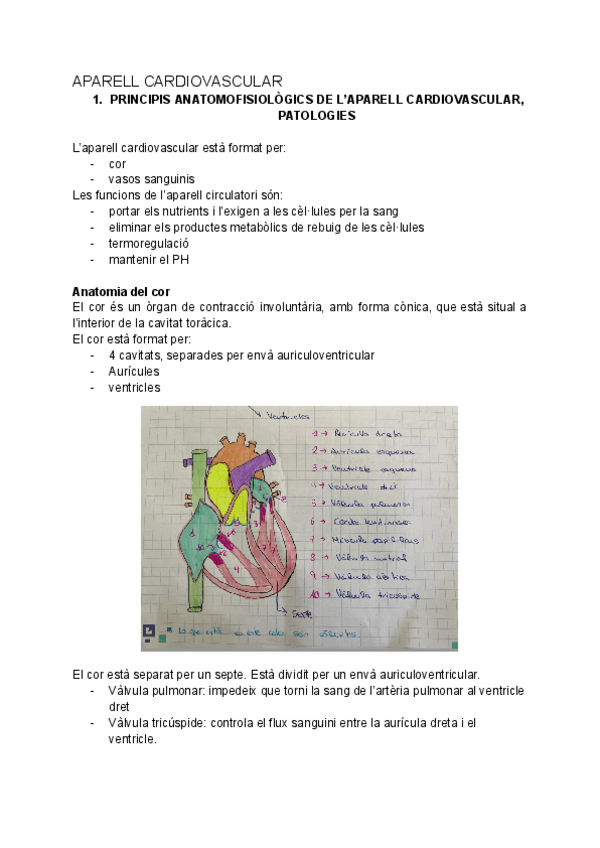 APARELL CARDIOVASCULAR
1. PRINCIPIS ANATOMOFISIOLÒGICS DE L'APARELL CARDIOVASCULAR,
PATOLOGIES
L'aparell cardiovascular està format per:
- cor
- vasos sanguinis
Les funcions de l'aparell circulatori són:
- portar els nutrients i l'exigen a les cèl·lules per la sang
- eliminar els productes metabòlics de rebuig de les cèl·lules
- termoregulació
- mantenir el PH
Anatomia del cor
El cor és un òrgan de contracció involuntària, amb forma cònica, que està situal a
l'interior de la cavitat toràcica.
El cor està format per:
- 4 cavitats, separades per envà auriculoventricular
- Aurícules
- ventricles
Ventricles
1 → Aurícula dreta
2 → Aurícula esquerra
3 → Ventricle esquerre
4 → Ventricle dret
5 → Vàlvula pulmonar
6 → Corda tendinosa
7 → Múscul papil·lar
8 → Vàlvula mitral
9 → Vàlvula aòrtica
10 → Vàlvula tricúspide
→ Septe
El cor està separat per un septe. Està dividit per un envà auriculoventricular.
- Vàlvula pulmonar: impedeix que torni la sang de l'artèria pulmonar al ventricle
dret
- Vàlvula tricúspide: controla el flux sanguini entre la aurícula dreta i el
ventricle.